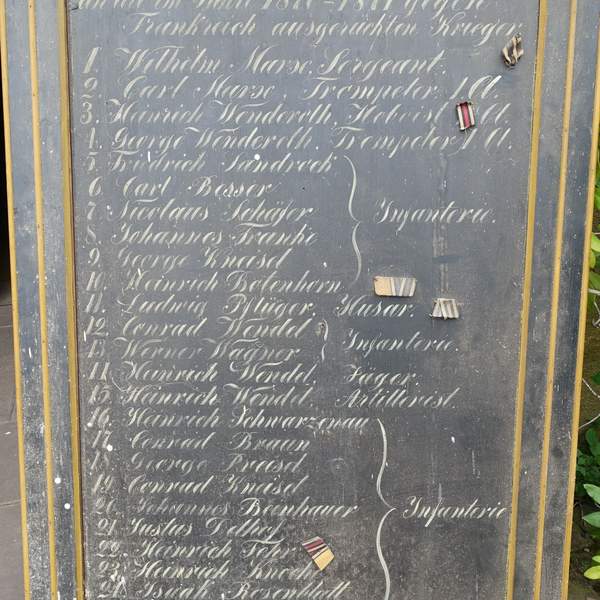 Frankreich ausgerückten Krieger
1. Wilhelm Marse, Sergeant.
2. Carl Marse, Trompeter, 1 A
3. Heinrich Wenderoth, Hoboist, A.
4. George Wenderoth, Trompeter, 1 A.
5. Friedrich Sandrock
6. Carl Besser
7. Nicolaus Schäfer Infanterie.
8. Johannes Francke
9. George Kneisel
10. Heinrich Botenhorn
11. Ludwig Pflüger, Husar.
12. Conrad Wendel
13. Werner Wagner Infanterie.
14. Heinrich Wendel, Jäger
15. Heinrich Wendel, Artillerist
16. Heinrich Schwarzenau
17. Conrad Braun
18. George Preisel
19. Conrad Kneisel
20. Johannes Beinhauer Infanterie
21. Justus
22. Heinrich Fehr
23. Heinrich Knoche
24. Isaak Rosenblatt